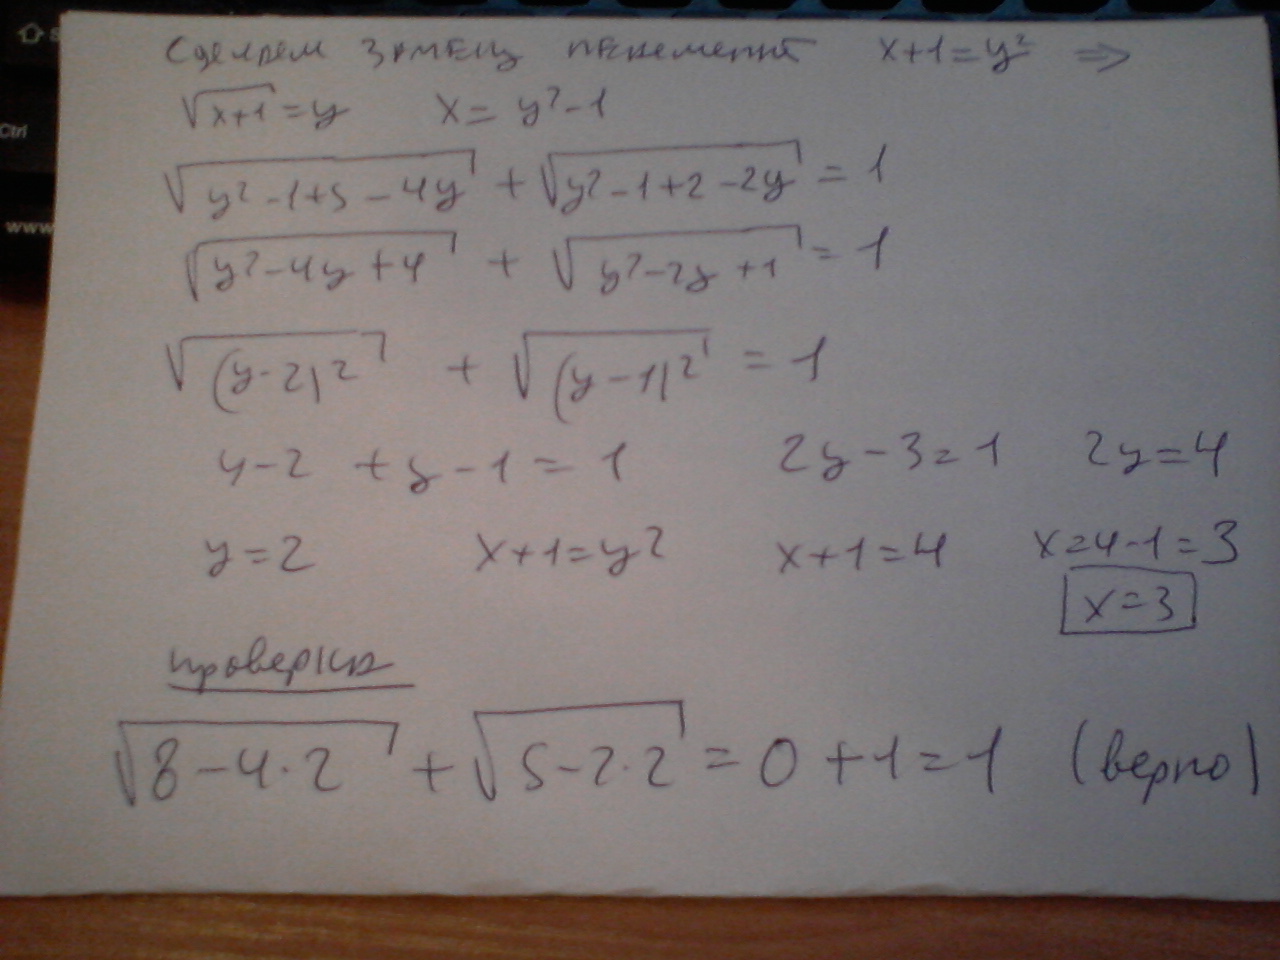 Сделаем замену переменной x+1=y² ⇒
√(x+1)=y x= y²-1
√(y²-1+5-4y) + √(y²-1+2-2y) = 1
√(y²-4y+4) + √(y²-2y+1) = 1
√((y-2)²) + √((y-1)²) = 1
y-2 + y-1 = 1 2y-3=1 2y=4
y=2 x+1=y² x+1=4 x=4-1=3
x=3
проверка
√(8-4·2) + √(5-2·2) = 0+1=1 (верно)
Ctrl
www